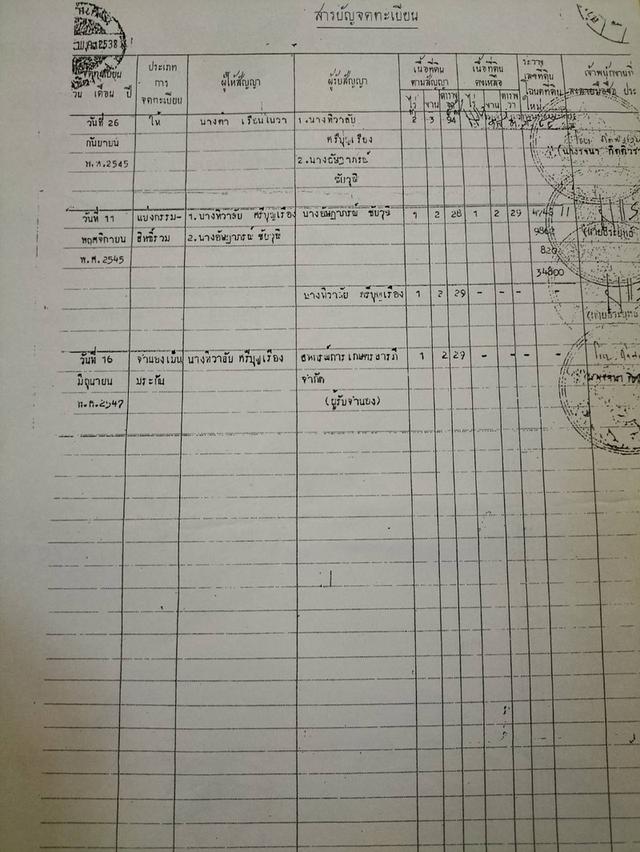 สารบัญจดทะเบียน
จดทะเบียน
วัน เดือน ปี
ประเภท
การ
จดทะเบียน
ผู้ให้สัญญา
ผู้รับสัญญา
เนื้อที่ดิน
ตามสัญญา
ไร่ งาน ตาราง วา
เนื้อที่ดิน
คงเหลือ
ไร่ งาน ตาราง วา
ระวาง
เลขที่ดิน
โฉนดที่ดิน
ใหม่
เจ้าพนักงานที่ดิน
วันที่ 26 ให้ นางคำ เรียนในวา 1.นางทิวาลัย 2 3 94
กันยายน ศรีบุญเรือง
พ.ศ.2545 2.นางอัษฎาภรณ์
ชัยวุฒิ
วันที่ 11 แบ่งกรรม- 1.นางทิวาลัย ศรีบุญเรือง นางอัษฎาภรณ์ ชัยวุฒิ 1 2 28 1 2 29 4745 II
พฤศจิกายน สิทธิ์รวม 2.นางอัษฎาภรณ์ ชัยวุฒิ
พ.ศ.2545 820
34800
นางทิวาลัย ศรีบุญเรือง 1 2 29 - - -
วันที่ 16 จำนองเป็น นางทิวาลัย ศรีบุญเรือง สหกรณ์การเกษตรสารภี 1 2 29 - - - -
มิถุนายน ประกัน จำกัด
พ.ศ.2547 (ผู้รับจำนอง)